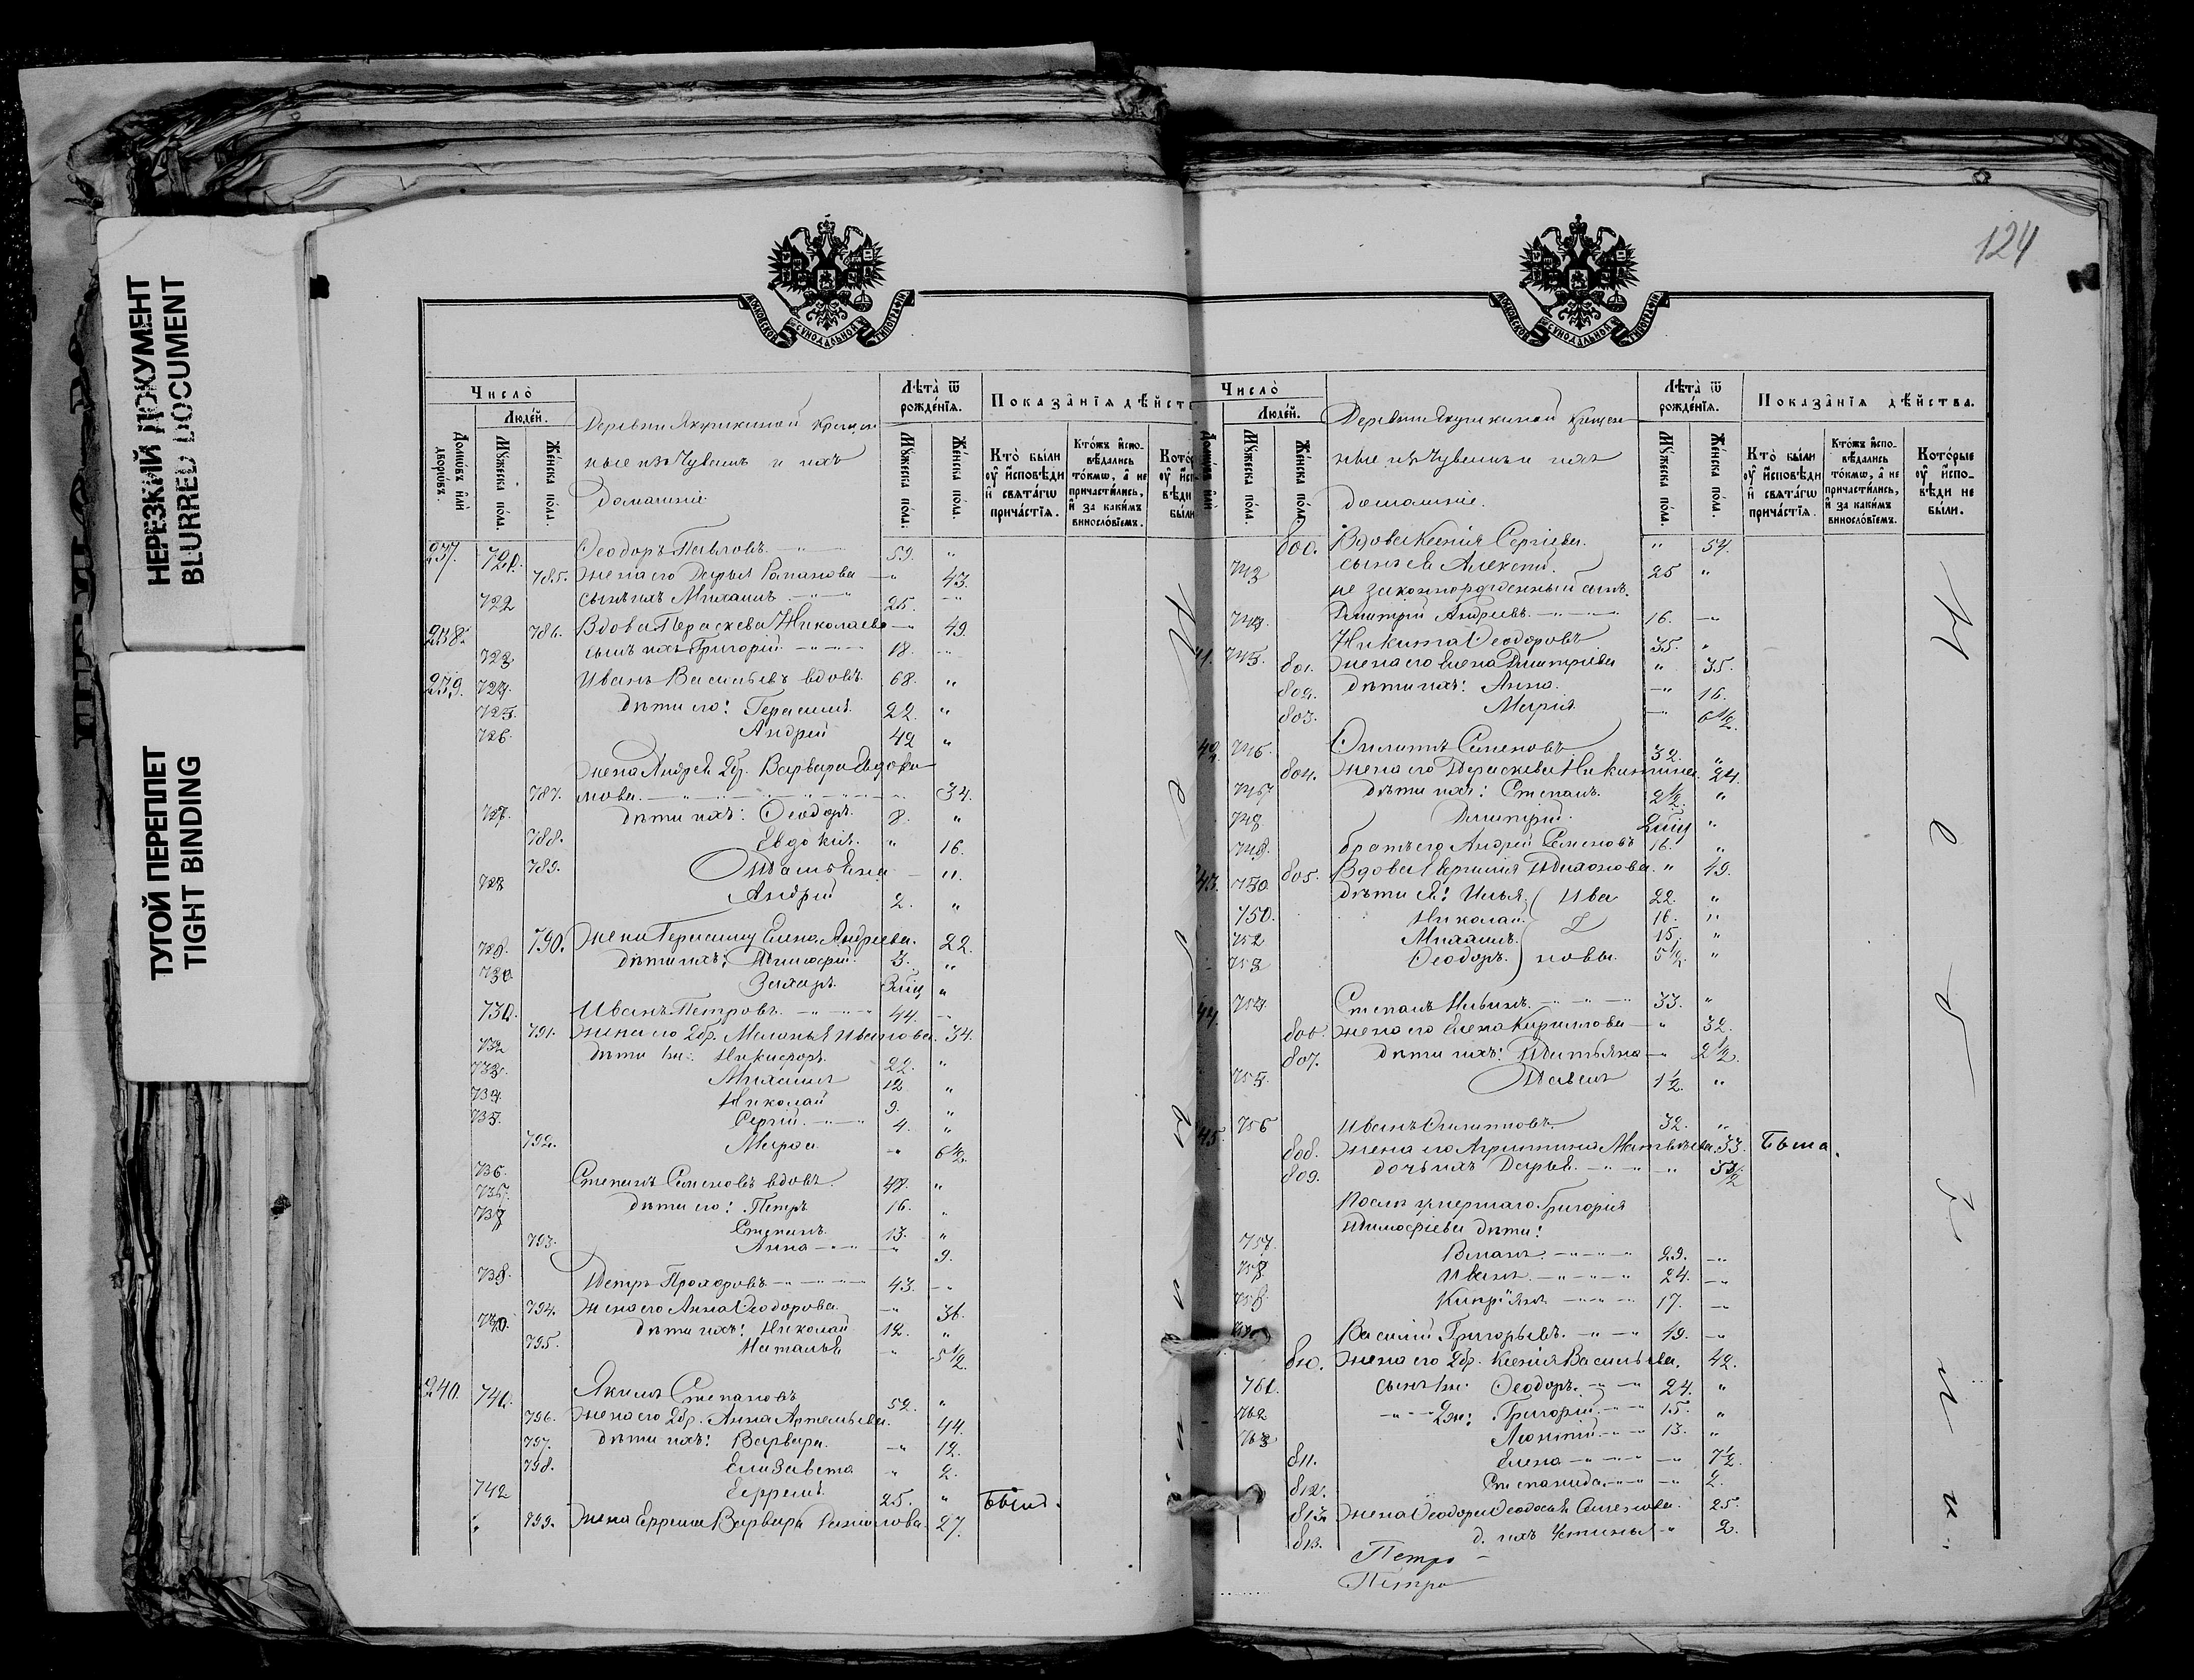 НЕРЕЗКИЙ ДОКУМЕНТ
BLURRED DOCUMENT
ТУГОЙ ПЕРЕПЛЕТ
TIGHT BINDING
Число̀
Люде́й.
Домѡ́въ и҆лѝ дворѡ́въ.
Мꙋ́жеска по́ла.
Же́нска по́ла.
Деревни Якушкиной крещен
ные изъ Чувашъ и ихъ
домашніе
Лѣ́та ѿ рожде́нїѧ.
Мꙋ́жеска по́ла.
Же́нска по́ла.
Показа̑нїѧ дѣ́йст
Кто̀ бы́ли ᲂу҆ и҆сповѣ́ди и҆ свѧта́гѡ прича́стїѧ.
Кто́жъ и҆спо-вѣ́дались то́кмѡ, а҆ не причасти́лись, и҆ за каки́мъ виносло́вїемъ.
237. 721. Ѳеодоръ Павловъ 59. "
785. жена его Дарья Романова " 43.
722 сынъ ихъ Михаилъ 25. "
238. 786. Вдова Параскева Николаева " 49.
723 сынъ ихъ Григорій 18. "
239. 724. Иванъ Васильевъ вдовъ 68. "
725. дѣти его: Герасимъ 22. "
726. Андрей 42 "
жена Андрея 2бр. Варвара Евдоки
787. мова. " 34.
727. дѣти ихъ: Ѳеодоръ 8. "
788. Евдокія. " 16.
789. Татьяна " 11.
728 Андрей 2. "
729. 790. Жена Герасима Елена Андреева. 22.
дѣти ихъ: Тимофей 3. "
730 Захаръ "
731. Иванъ Петровъ 44. "
791. жена его 2бр. Меланья Иванова. 34.
732 дѣти 1ж: Никифоръ 22. "
733. Михаилъ 12. "
734. Николай 9. "
735. Сергій 4. "
792. Марѳа " 6½.
736. Степанъ Семеновъ вдовъ. 47. "
737. дѣти его: Петръ 16. "
Степанъ. 13. "
793. Анна " 9.
738. Петръ Прохоровъ 43. "
794. жена его Анна Ѳеодорова. " 36.
740. дѣти ихъ: Николай 12. "
795. Наталья " 5½.
240. 741. Якимъ Степановъ 52. "
796. жена его 2бр. Анна Артемьева. 44.
797. дѣти ихъ: Варвара. " 12.
798. Елизавета " 2.
742 Ефремъ 25. " Былъ.
" 799. Жена Ефрема Варвара 27.
124
Число̀
Люде́й.
Мꙋ́жеска по́ла.
Же́нска по́ла.
Деревни Якушкиной крещен
ные изъ Чувашъ и ихъ
домашніе.
Лѣ́та ѿ рожде́нїѧ.
Мꙋ́жеска по́ла.
Же́нска по́ла.
Показа̑нїѧ дѣ́йства.
Кто̀ бы́ли ᲂу҆ и҆сповѣ́ди и҆ свѧта́гѡ прича́стїѧ.
Кто́жъ и҆спо-вѣ́дались то́кмѡ, а҆ не причасти́лись, и҆ за каки́мъ виносло́вїемъ.
Кото́рые ᲂу҆ и҆спо-вѣ́ди не бы́ли.
800. Вдова Ксенія Сергіева. " 54.
743 сынъ ея Алексѣй. 25 "
не законнорожденный сынъ.
744. Дмитрій Андреевъ 16. "
41. 745. Никита Ѳеодоровъ 35. "
801. жена его Елена Дмитріева " 35.
802. дѣти ихъ: Анна. " 16.
803. Марія " 6½.
42. 746. Филиппъ Семеновъ 32. "
804. жена его Параскева Никитина. 24.
747 дѣти ихъ: Степанъ. 2½. "
748 Дмитрій. "
749. братъ его Андрей Семеновъ 16. "
43. 750 805. Вдова Евгенія Тихонова. " 49.
дѣти ея: Илья 22. "
750. Николай 16. "
752 Михаилъ 15. "
753 Ѳеодоръ. новы. 5½. "
44. 754. Степанъ 33. "
806. жена его Елена Кириллова " 32.
807. дѣти ихъ: Татьяна " 2½.
755. Павелъ 1½. "
45. 756 Иванъ Филипповъ. 32. "
808. жена его Агриппина Матвѣева. 33. Была.
809. дочь ихъ Дарья. " 5½
После умершаго Григорія
Тимофеева дѣти:
757. Романъ. 29. "
758. Иванъ. 24. "
759. Кипріянъ 17. "
Василій Григорьевъ. 49. "
810. жена его 2бр. Ксенія Васильева. 42.
761. сынъ 1ж: Ѳеодоръ. 24. "
762 2ж: Григорій 15. "
763 Леонтій 13. "
811. Елена " 7½.
812. Степанида " 2.
813. жена Ѳеодора Ѳеодосья Семенова. 25.
813. д. ихъ Устинья " 2.
Петро
Петро